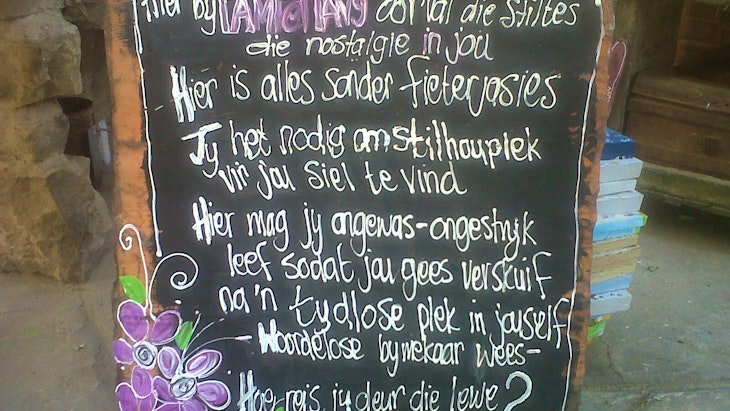 Hier by
die nostalgie in jou
Hier is alles sonder fieterjasies
Jy het nodig om stilhouplek
vir jou siel te vind
Hier mag jy ongewas-ongestryk
leef sodat jou gees verskuif
na 'n tydlose plek in jouself
- Woordelose bymekaar wees -
Hoe reis jy deur die lewe?